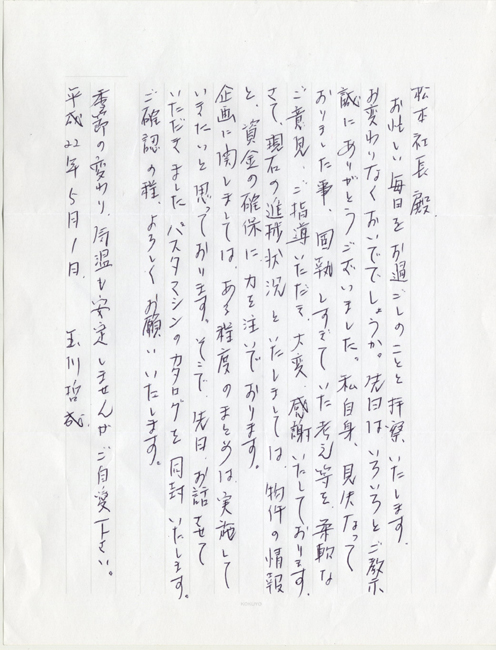 松本社長殿
お忙しい毎日をお過ごしのことと拝察いたします。
お変わりなくおいででしょうか。先日はいろいろとご教示
誠にありがとうございました。私自身、見失なって
おりました事、固執しすぎていた考え等を、柔軟な
ご意見、ご指導いただき、大変、感謝いたしております。
さて、現在の進捗状況といたしましては、物件の情報
と、資金の確保に力を注いでおります。
企画に関しましては、ある程度のまとめは実施して
いきたいと思っております。そこで、先日、お話させて
いただきましたパスタマシンのカタログを同封いたします。
ご確認の程、よろしくお願いいたします。
季節の変わり、気温も安定しませんがご自愛下さい。
平成22年5月1日 玉川哲成